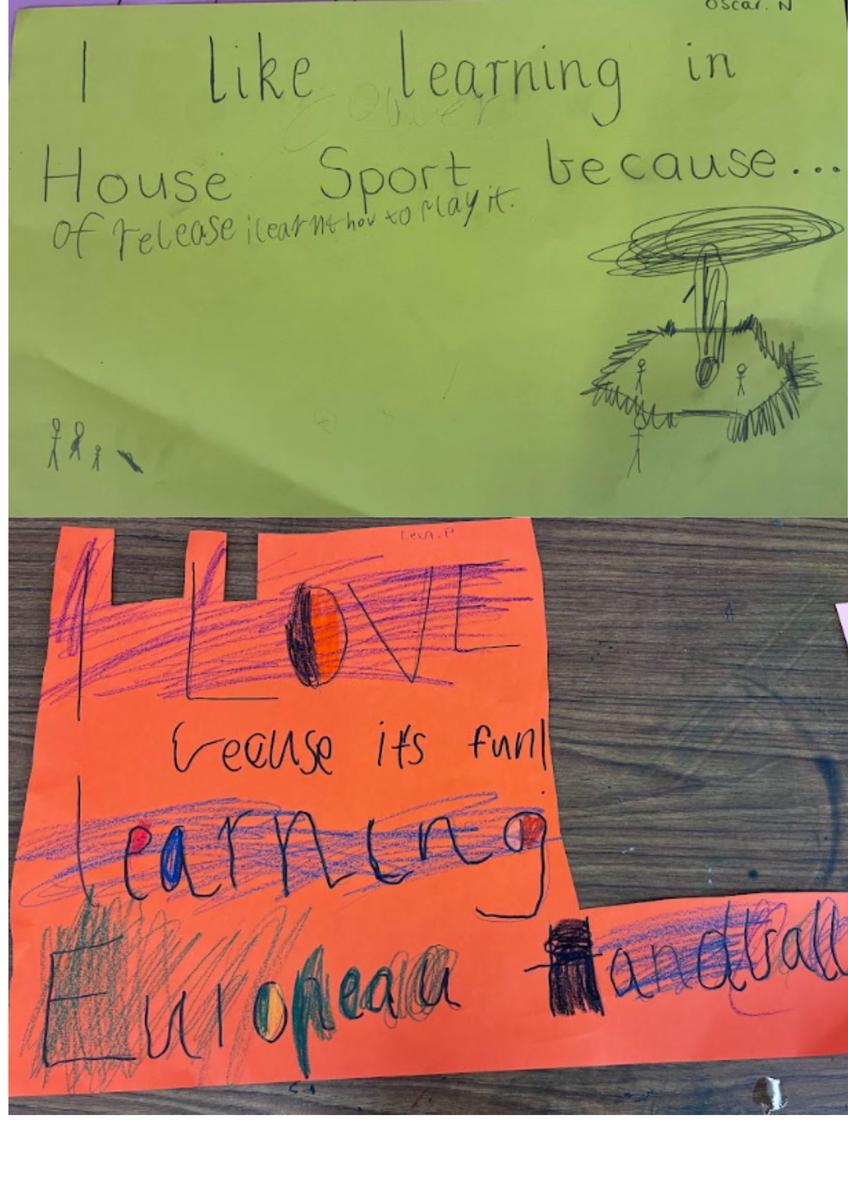 Oscar. N
I like learning in
House Sport because...
of release i learnt how to play it.
Levi. P
I LOVE
becuse it's fun!
Learning
European Handball